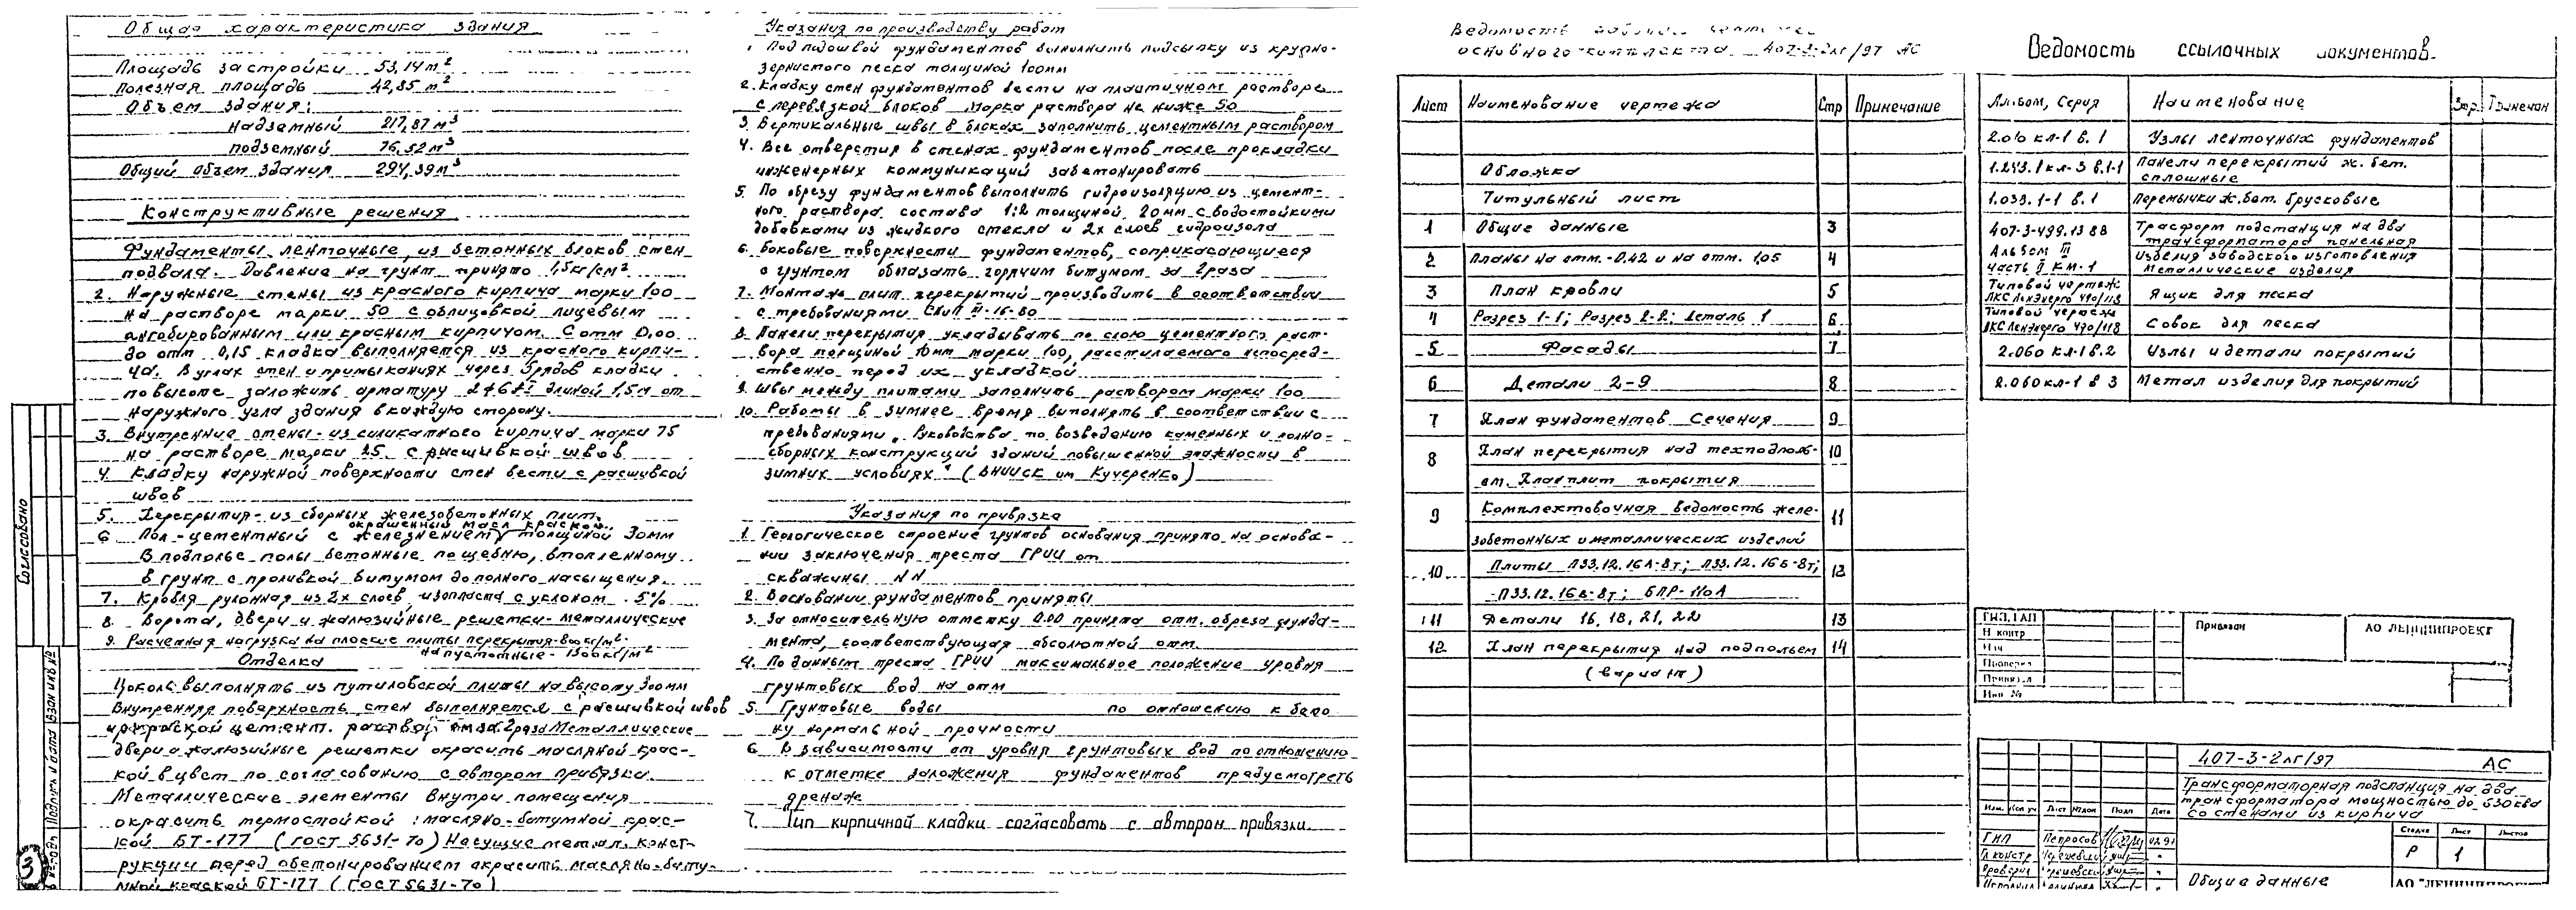 Общая характеристика здания
Площадь застройки 53,14 м²
Полезная площадь 42,85 м²
Объем здания:
Надземный 217,87 м³
подземный 76,52 м³
Общий объем здания 294,39 м³
Конструктивные решения
Фундаменты ленточные, из бетонных блоков стен
подвала. Давление на грунт принято 1,5кг/см²
2. Наружные стены из красного кирпича марки 100
на растворе марки 50 с облицовкой лицевым
ангобированным или красным кирпичом. С отм 0,00
до отм 0,15 кладка выполняется из красного кирпи-
ча. В углах стен и примыканиях через 3 рядов кладки
по высоте заложить арматуру длиной 1,5м от
наружного угла здания в каждую сторону.
3. Внутренние стены - из силикатного кирпича марки 75
на растворе марки 25 с расшивкой швов
4. Кладку наружной поверхности стен вести с расшивкой
швов
5. Перекрытия - из сборных железобетонных плит.
окрашенный масл краской
6 Пол - цементный с железнением толщиной 30мм
В подполье полы бетонные по щебню, втопленному
в грунт с проливкой битумом до полного насыщения.
7. Кровля рулонная из 2х слоев изопласта с уклоном 5%
8. Ворота, двери и жалюзийные решетки - металлические
9. Расчетная нагрузка на плоские плиты перекрытия - 800кг/м²
на пустотные - 1500кг/м²
Отделка
Цоколь выполнять из путиловской плиты на высоту 300мм
Внутренняя поверхность стен выполняется с расшивкой швов
цемент. за 2 раза Металлические
двери и жалюзийные решетки окрасить масляной крас-
кой в цвет по согласованию с автором привязки.
Металлические элементы внутри помещения
окрасить термостойкой масляно-битумной крас-
кой БТ-177 (ГОСТ 5631-70) Несущие метал. конст-
рукции перед обетонированием окрасить масляно-биту-
мной краской БТ-177 (ГОСТ 5631-70)
Указания по производству работ
Под подошвой фундаментов выполнить подсыпку из крупно-
зернистого песка толщиной 100мм
2. Кладку стен фундаментов вести на пластичном растворе
с перевязкой блоков Марка раствора не ниже 50
3. Вертикальные швы в блоках заполнить цементным раствором
4. Все отверстия в стенах фундаментов после прокладки
инженерных коммуникаций забетонировать
5. По обрезу фундаментов выполнить гидроизоляцию из цемент-
ного раствора состава 1:2 толщиной 20мм с водостойкими
добавками из жидкого стекла и 2х слоев гидроизола
6. Боковые поверхности фундаментов, соприкасающиеся
с грунтом обмазать горячим битумом за 2 раза
7. Монтаж плит перекрытий производить в соответствии
с требованиями СНиП III-16-80
8. Панели перекрытия укладывать по слою цементного раст-
вора толщиной 10мм марки 100, расстилаемого непосред-
ственно перед их укладкой
9. Швы между плитами заполнить раствором марки 100
10. Работы в зимнее время выполнять в соответствии с
требованиями „Руководства по возведению каменных и полно-
сборных конструкций зданий повышенной этажности в
зимних условиях" (ВНИИСК им Кучеренко)
Указания по привязке
1. Геологическое строение грунтов основания принято на основа-
нии заключения треста ГРИИ от
скважины NN
2. В основании фундаментов приняты
3. За относительную отметку 0.00 принята отм. обреза фунда-
мента, соответствующая абсолютной отм.
4. По данным треста ГРИИ максимальное положение уровня
грунтовых вод на отм
5. Грунтовые воды по отношению к бето
ну нормальной прочности
6. В зависимости от уровня грунтовых вод по отношению
к отметке заложения фундаментов предусмотреть
дренаж
7. Тип кирпичной кладки согласовать с автором привязки.
Ведомость
основного комплекта 407-3-2лг/97 АС
Лист Наименование чертежа Стр Примечание
Обложка
Титульный лист
1 Общие данные 3
2 Планы на отм. -0.42 и на отм. 1,05 4
3 План кровли 5
4 Разрез 1-1; Разрез 2-2; Деталь 1 6
5 Фасады 7
6 Детали 2-9 8
7 План фундаментов Сечения 9
8 План перекрытия над техподполь- 10
ем. План плит покрытия
9 Комплектовочная ведомость желе- 11
зобетонных и металлических изделий
10 Плиты П33.12.16А-8т; П33.12.16Б-8т; 12
П33.12.16в-8т; БПР-110А
11 Детали 16, 18, 21, 22 13
12 План перекрытия над подпольем 14
(вариант)
Ведомость ссылочных документов.
Альбом, Серия Наименование Стр. Примечан
2.010 кл-1 в. 1 Узлы ленточных фундаментов
1.243.1 кл-3 в.1-1 Панели перекрытий ж. бет.
сплошные
1.033.1-1 в.1 Перемычки ж.бет. брусковые
407-3-499.13 88 Трасформ подстанция на два
трансформатора панельная
Альбом III изделия заводского изготовления
часть II КМ-1 Металлические изделия
Типовой чертеж
ЛКС Ленэнерго 490/113 Ящик для песка
Типовой чертеж
ЛКС Ленэнерго 490/118 Совок для песка
2.060 кл-1 в.2 Узлы и детали покрытий
2.060кл-1 в 3 Метал изделия для покрытий
ГИП, ГАП
Н контр
Нач
Проверил
Привязал
Инв №
Привязан
АО ЛЕННИИПРОЕКТ
407-3-2лг/97 АС
Трансформаторная подстанция на два
трансформатора мощностью до 630ква
со стенами из кирпича
Изм. Кол уч Лист №док Подп Дата
ГИП Петросов 02.97
Гл констр
Проверил
Стадия Лист Листов
Р 1
Общие данные
АО "ЛЕННИИПРОЕКТ
Согласовано
Взам инв №
Подпись и дата
3